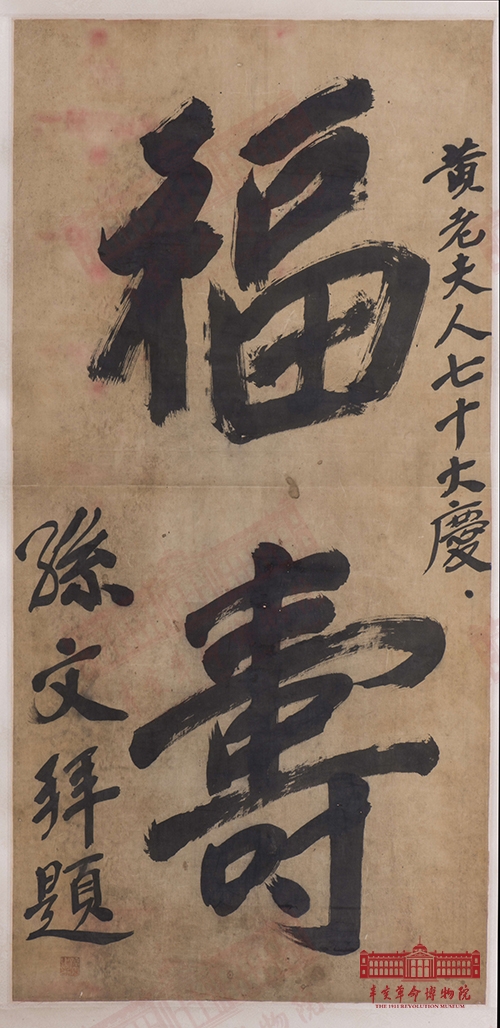 黃老夫人七十大慶．
福壽
孫文拜題
辛亥革命博物院
THE 1911 REVOLUTION MUSEUM